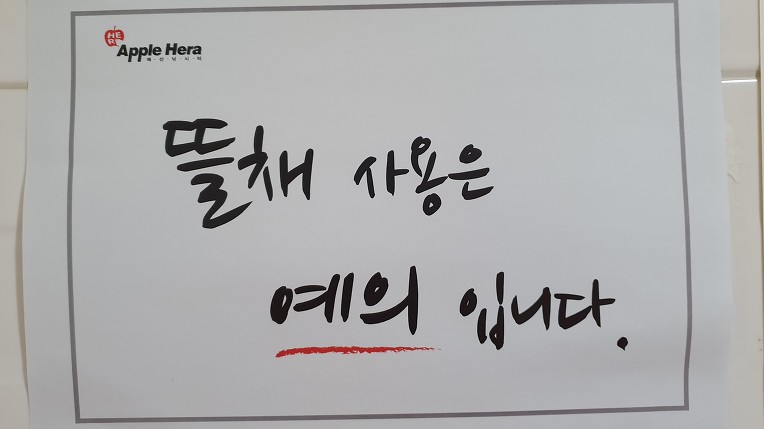 HE
RA
Apple Hera
예·산·낚·시·터
뜰채 사용은
예의 입니다.